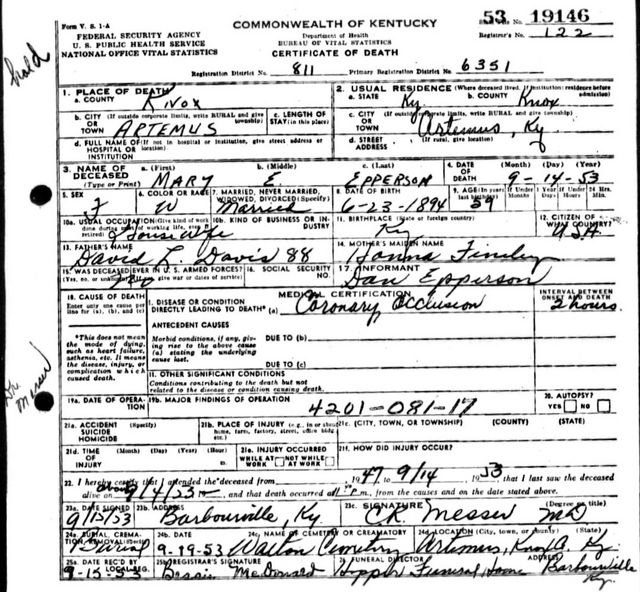 Form V. S. 1-A
COMMONWEALTH OF KENTUCKY
53 19146
FEDERAL SECURITY AGENCY
U. S. PUBLIC HEALTH SERVICE
NATIONAL OFFICE VITAL STATISTICS
Department of Health
BUREAU OF VITAL STATISTICS
CERTIFICATE OF DEATH
Registrar's No. 122
Registration District No. 811 Primary Registration District No. 6351
hold
1. PLACE OF DEATH
a. COUNTY Knox
2. USUAL RESIDENCE (Where deceased lived. If institution: residence before admission)
a. STATE Ky. b. COUNTY Knox
b. CITY (If outside corporate limits, write RURAL and give township) OR TOWN ARTEMUS
c. LENGTH OF STAY (in this place)
c. CITY (If outside corporate limits, write RURAL and give township) OR TOWN Artemus, Ky
d. FULL NAME OF (If not in hospital or institution, give street address or location) HOSPITAL OR INSTITUTION
d. STREET ADDRESS (If rural, give location)
3. NAME OF DECEASED (Type or Print) a. (First) MARY b. (Middle) E. c. (Last) EPPERSON
4. DATE OF DEATH (Month) (Day) (Year) 9-14-53
5. SEX F
6. COLOR OR RACE W
7. MARRIED, NEVER MARRIED, WIDOWED, DIVORCED (Specify) Married
8. DATE OF BIRTH 6-23-1894
9. AGE (In years last birthday) 59 If Under 1 Year Months Days If Under 24 Hrs. Hours Min.
10a. USUAL OCCUPATION (Give kind of work done during most of working life, even if retired) Housewife
10b. KIND OF BUSINESS OR INDUSTRY
11. BIRTHPLACE (State or foreign country) Ky
12. CITIZEN OF WHAT COUNTRY? USA
13. FATHER'S NAME David L. Davis 88
14. MOTHER'S MAIDEN NAME Hanna Finley
15. WAS DECEASED EVER IN U. S. ARMED FORCES? (Yes, no, or unknown) (If yes, give war or dates of service) No
16. SOCIAL SECURITY NO.
17. INFORMANT Dan Epperson
18. CAUSE OF DEATH
Enter only one cause per line for (a), (b), and (c)
MEDICAL CERTIFICATION
INTERVAL BETWEEN ONSET AND DEATH
I. DISEASE OR CONDITION DIRECTLY LEADING TO DEATH* (a) Coronary Occlusion 2 hours
*This does not mean the mode of dying, such as heart failure, asthenia, etc. It means the disease, injury, or complication which caused death.
ANTECEDENT CAUSES
Morbid conditions, if any, giving rise to the above cause (a) stating the underlying cause last.
DUE TO (b)
DUE TO (c)
II. OTHER SIGNIFICANT CONDITIONS
Conditions contributing to the death but not related to the disease or condition causing death.
Dr. Messer
19a. DATE OF OPERATION
19b. MAJOR FINDINGS OF OPERATION
4201-081-17
20. AUTOPSY? YES NO
21a. ACCIDENT SUICIDE HOMICIDE (Specify)
21b. PLACE OF INJURY (e.g., in or about home, farm, factory, street, office bldg., etc.)
21c. (CITY, TOWN, OR TOWNSHIP) (COUNTY) (STATE)
21d. TIME OF INJURY (Month) (Day) (Year) (Hour)
21e. INJURY OCCURRED WHILE AT WORK NOT WHILE AT WORK
21f. HOW DID INJURY OCCUR?
22. I hereby certify that I attended the deceased from 1947, 9/14 1953 that I last saw the deceased
alive on 9/4/53, and that death occurred at 11 P.m., from the causes and on the date stated above.
23a. DATE SIGNED 9/15/53
23b. ADDRESS Barbourville, Ky
23c. SIGNATURE (Degree or title) C.R. Messer MD
24a. BURIAL, CREMATION, REMOVAL (Specify) Burial
24b. DATE 9-19-53
24c. NAME OF CEMETERY OR CREMATORY Walton Cemetery
24d. LOCATION (City, town, or county) (State) Artemus, Knox Co. Ky.
25a. DATE REC'D BY LOCAL REG. 9-15-53
25b. REGISTRAR'S SIGNATURE Bessie McDonald
26. FUNERAL DIRECTOR Hopper Funeral Home Barbourville Ky.